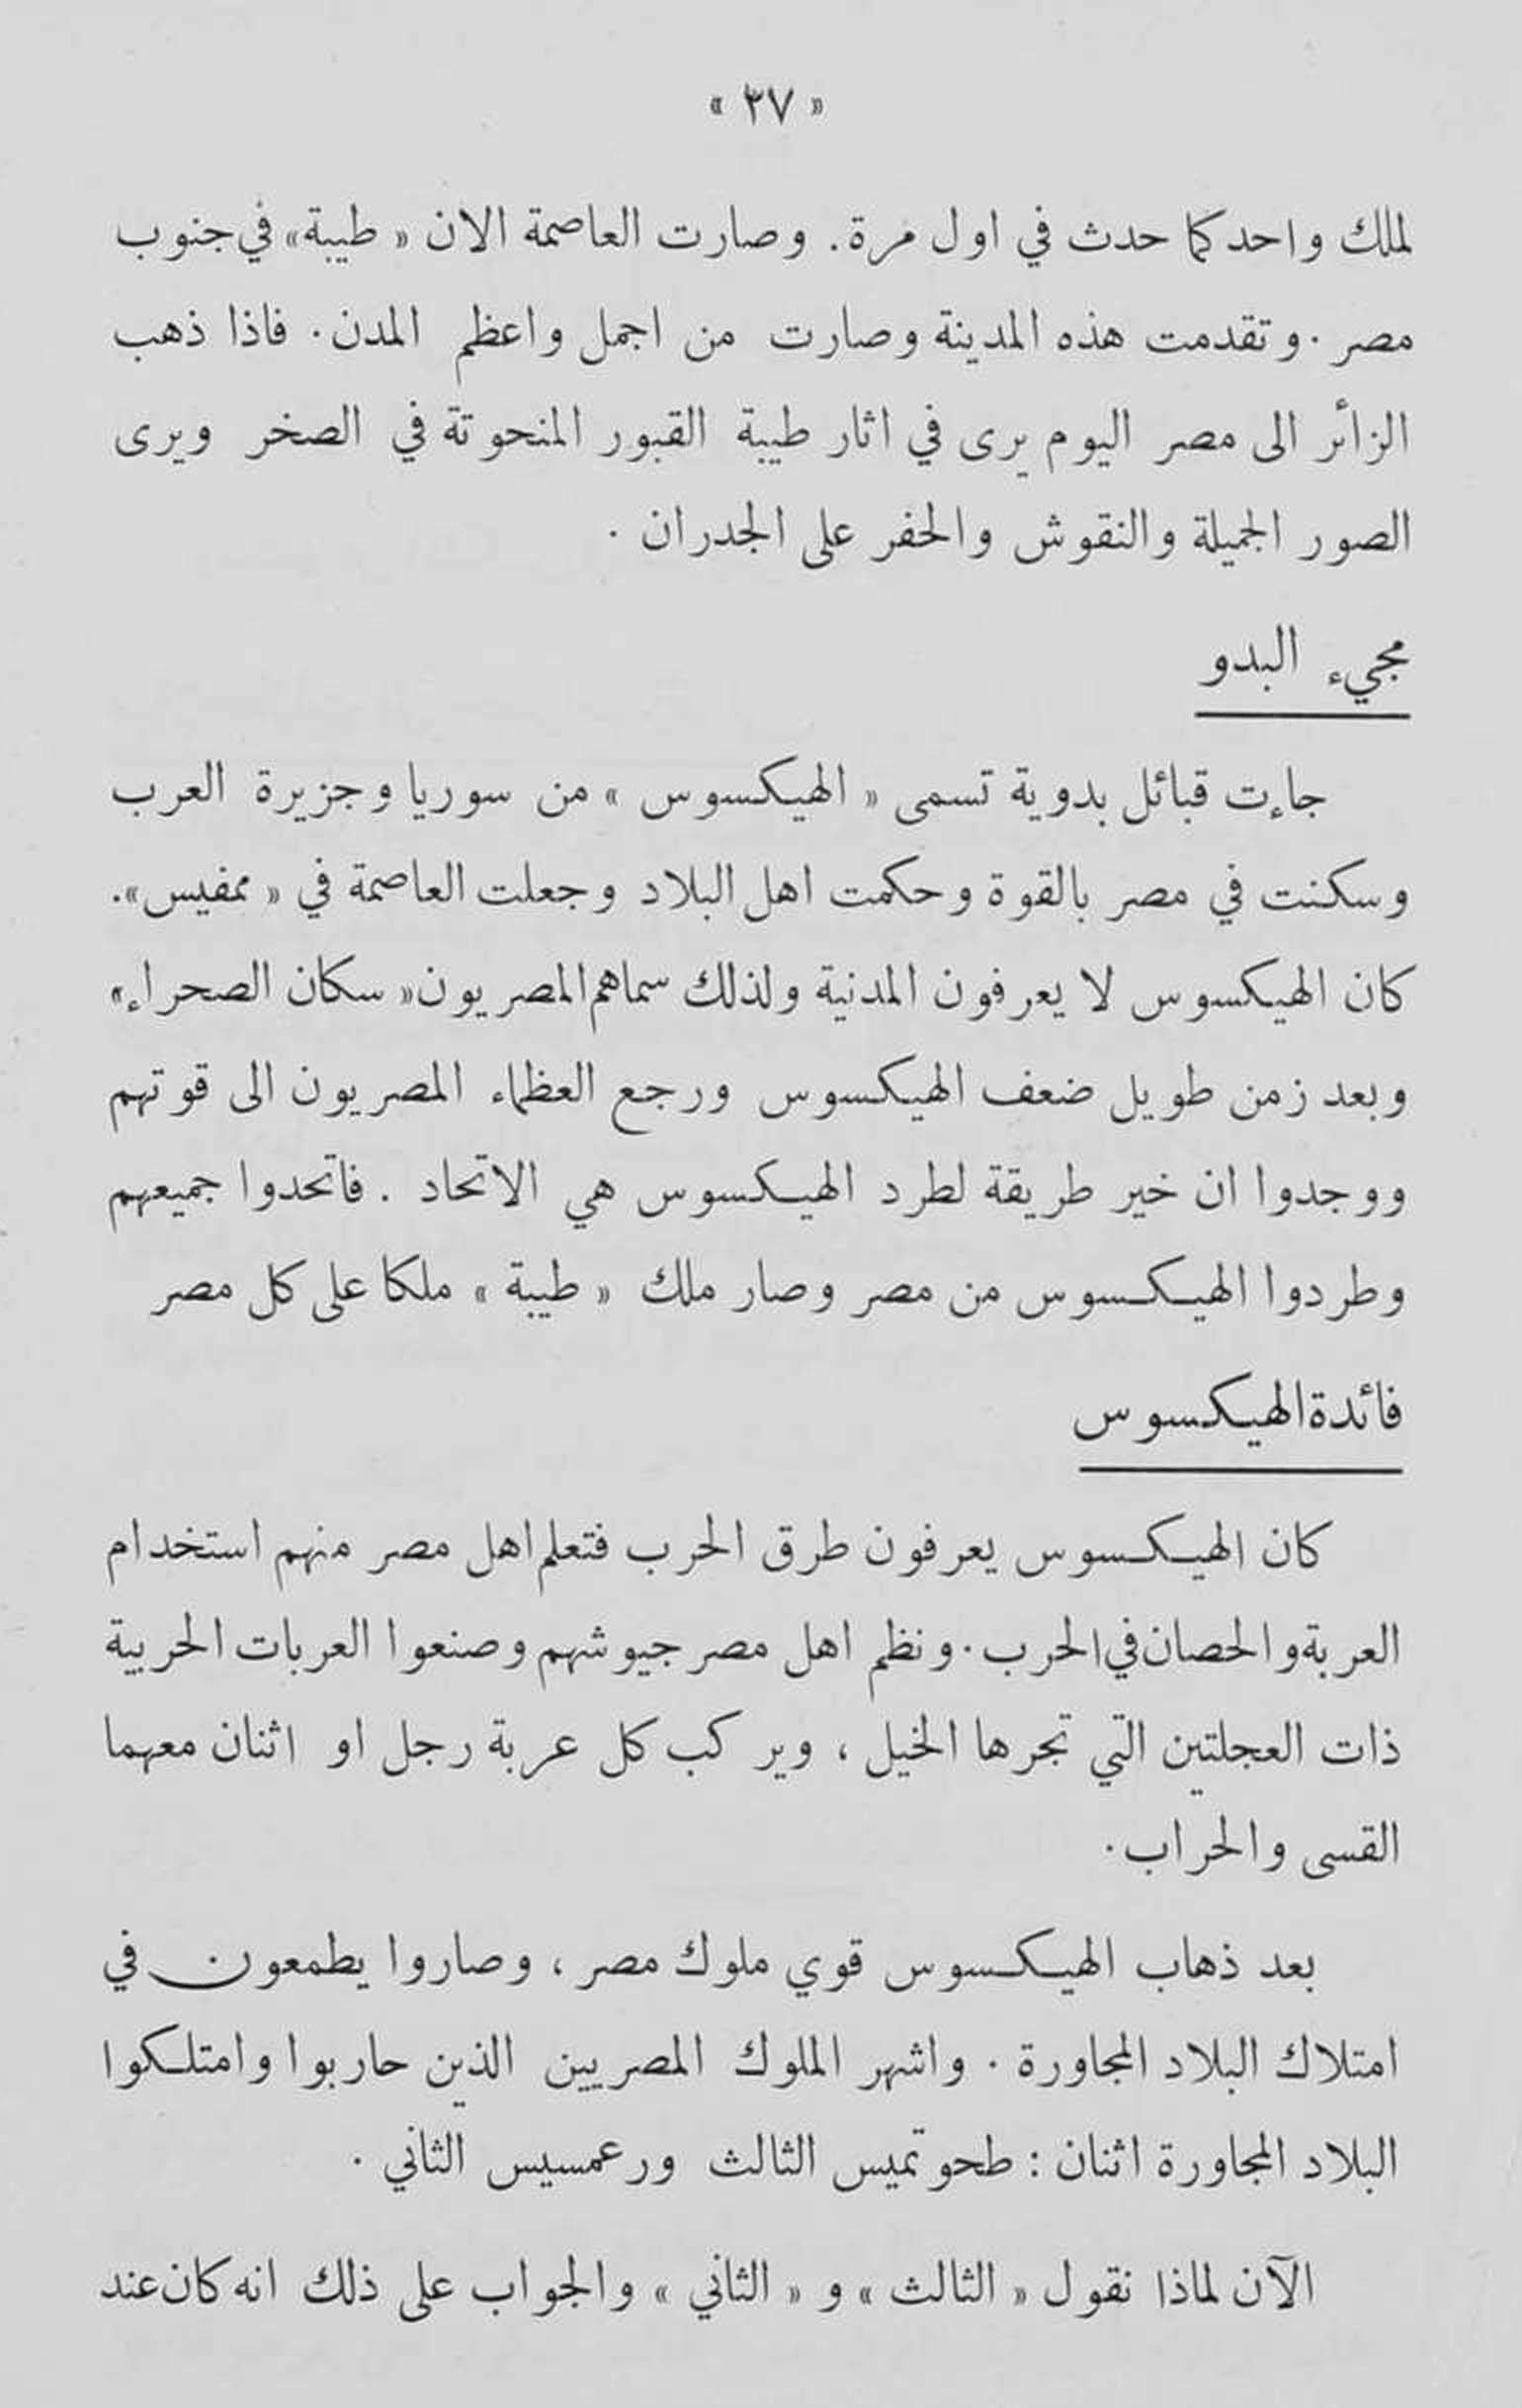 « ٣٧ »
لملك واحد كما حدث في اول مرة. وصارت العاصمة الان « طيبة» في جنوب
مصر. وتقدمت هذه المدينة وصارت من اجمل واعظم المدن. فاذا ذهب
الزائر الى مصر اليوم يرى في اثار طيبة القبور المنحوتة في الصخر ويرى
الصور الجميلة والنقوش والحفر على الجدران .
مجيء البدو
جاءت قبائل بدوية تسمى « الهيكسوس » من سوريا وجزيرة العرب
وسكنت في مصر بالقوة وحكمت اهل البلاد وجعلت العاصمة في « ممفيس».
كان الهيكسوس لا يعرفون المدنية ولذلك سماهم المصريون« سكان الصحراء»
وبعد زمن طويل ضعف الهيكسوس ورجع العظماء المصريون الى قوتهم
ووجدوا ان خير طريقة لطرد الهيكسوس هي الاتحاد . فاتحدوا جميعهم
وطردوا الهيكسوس من مصر وصار ملك « طيبة » ملكا على كل مصر
فائدة الهيكسوس
كان الهيكسوس يعرفون طرق الحرب فتعلم اهل مصر منهم استخدام
العربة والحصان في الحرب. ونظم اهل مصر جيوشهم وصنعوا العربات الحربية
ذات العجلتين التي تجرها الخيل ، ويركب كل عربة رجل او اثنان معهما
القسى والحراب.
بعد ذهاب الهيكسوس قوي ملوك مصر ، وصاروا يطمعون في
امتلاك البلاد المجاورة . واشهر الملوك المصريين الذين حاربوا وامتلكوا
البلاد المجاورة اثنان : طحوتميس الثالث ورعمسيس الثاني .
الآن لماذا نقول « الثالث » و « الثاني » والجواب على ذلك انه كان عند